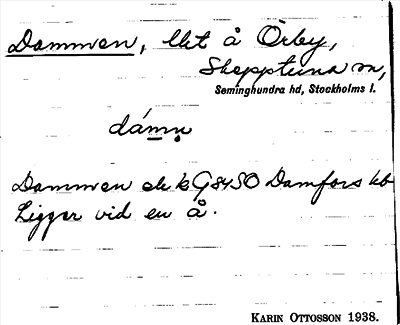 Dammen, lht å Örby,
Skepptuna sn,
Seminghundra hd, Stockholms l.
dámṇ
Dammen ek kG 8450 Damfors kb
Ligger vid en å.
KARIN OTTOSSON 1938.